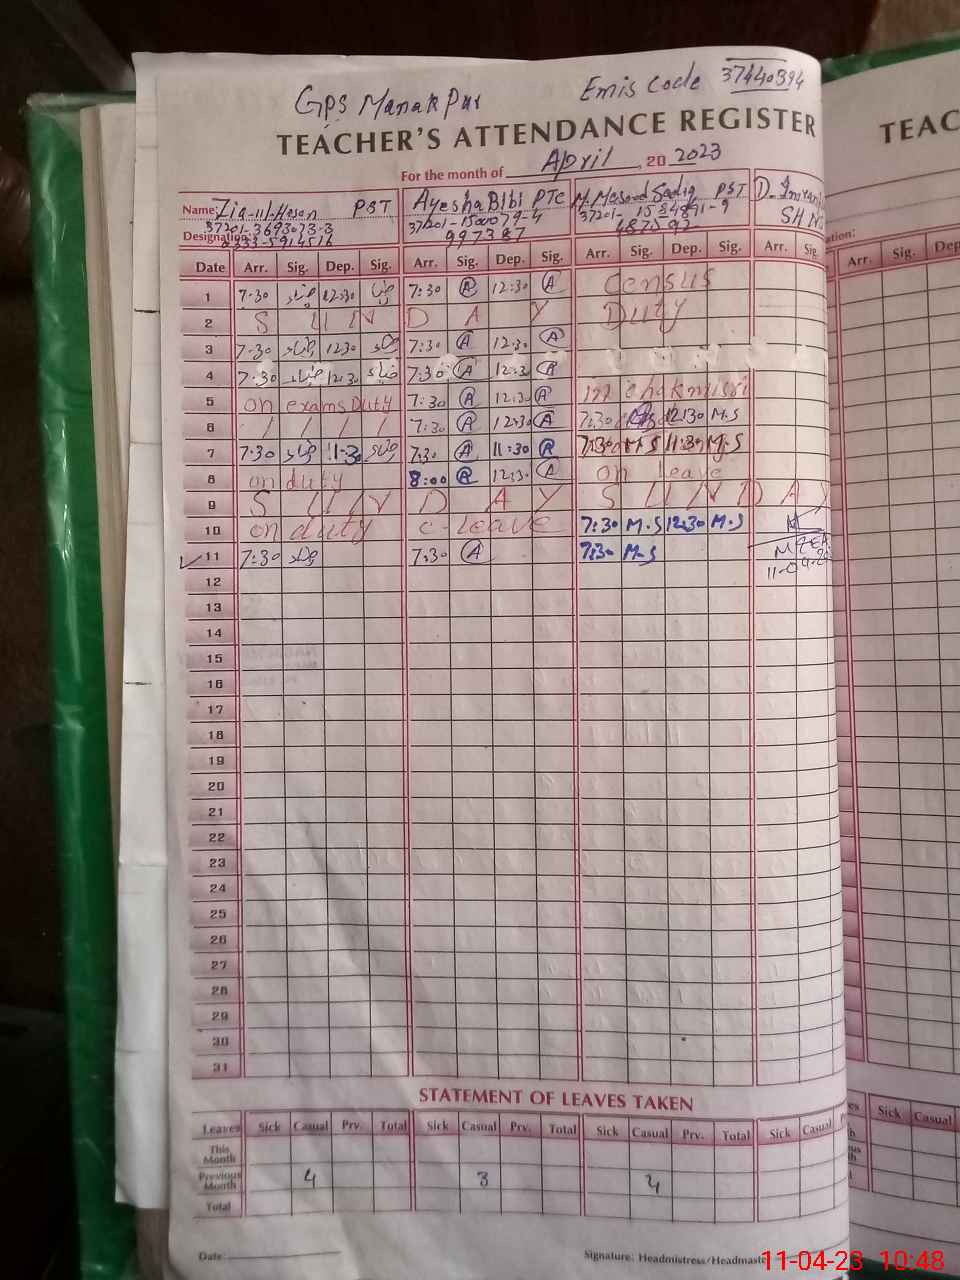 GPS Manakpur Emis Code 37440394
TEACHER'S ATTENDANCE REGISTER TEAC
For the month of April, 20 2023
Name: Zia-ul-Hasan PST Ayesha Bibi PTC M. Masood Sadiq PST D. Imran
37201-3693073-3 37201-1500079-4 37201-1534891-9 SHNC
Designation: 0333-5914516 997387 487592 ation:
Date Arr. Sig. Dep. Sig. Arr. Sig. Dep. Sig. Arr. Sig. Dep. Sig. Arr. Sig. Arr. Sig. Dep
1 7:30 ضیاء 12:30 ضیاء 7:30 A 12:30 A Census
2 S U N D A Y Duty
3 7:30 ضیاء 12:30 ضیاء 7:30 A 12:30 A
4 7:30 ضیاء 12:30 ضیاء 7:30 A 12:30 A
5 on exams Duty 7:30 A 12:30 A in chakmisri
6 / / / / 7:30 A 12:30 A 7:30 12:30 M.S
7 7:30 ضیاء 11:30 ضیاء 7:30 A 11:30 A 7:30 M.S 11:30 M.S
8 on duty 8:00 A 12:30 A on leave
9 S U N D A Y S U N D A Y
10 on duty c-leave 7:30 M.S 12:30 M.S
11 7:30 ضیاء 7:30 A 7:30 M.S
12 11-04-23
13
14
15
16
17
18
19
20
21
22
23
24
25
26
27
28
29
30
31
STATEMENT OF LEAVES TAKEN
Leaves Sick Casual Prv. Total Sick Casual Prv. Total Sick Casual Prv. Total Sick Casual Sick Casual
This Month
Previous Month 4 3 4
Total
Date: Signature: Headmistress/Headmaste
11-04-23 10:48